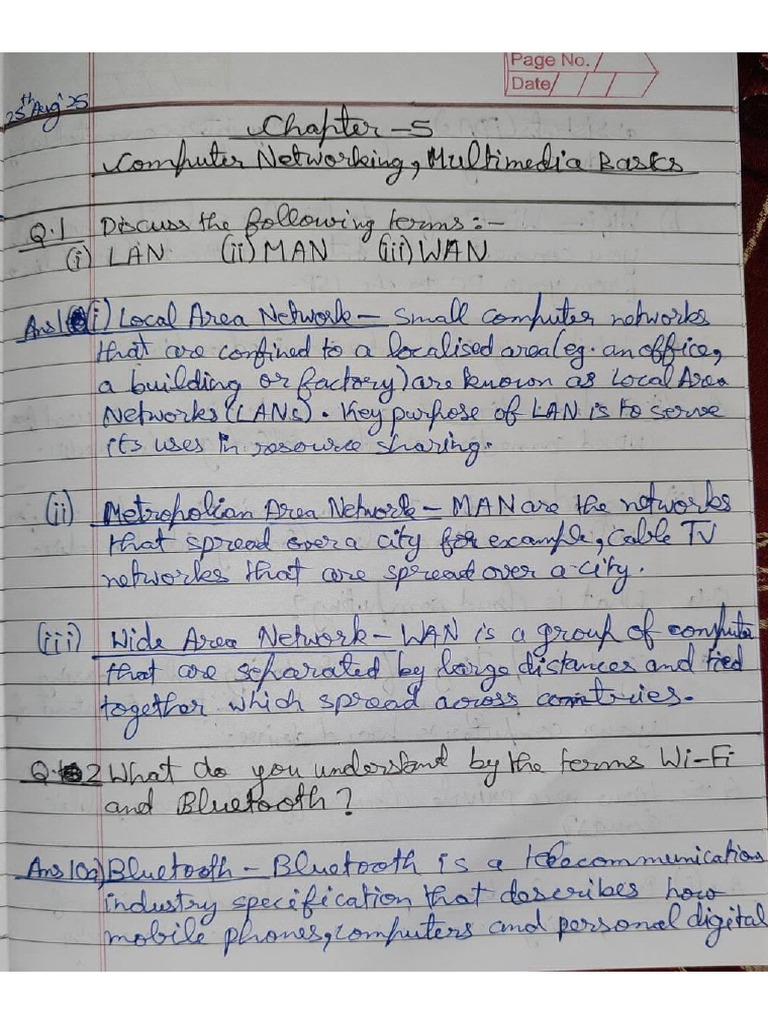 Page No. /
Date / / /
25th Aug' 25
Chapter - 5
Computer Networking, Multimedia Basics
Q.1 Discuss the following terms :-
(i) LAN (ii) MAN (iii) WAN
Ans1 (i) Local Area Network - Small computer networks
that are confined to a localised area (eg. an office,
a building or factory) are known as Local Area
Networks (LANs). Key purpose of LAN is to serve
its uses in resource sharing.
(ii) Metropolian Area Network - MAN are the networks
that spread over a city for example, Cable TV
networks that are spread over a city.
(iii) Wide Area Network - WAN is a group of computer
that are separated by large distances and tied
together which spread across countries.
Q. 2 What do you understand by the terms Wi-Fi
and Bluetooth?
Ans (a) Bluetooth - Bluetooth is a telecommunication
industry specification that describes how
mobile phones, computers and personal digital